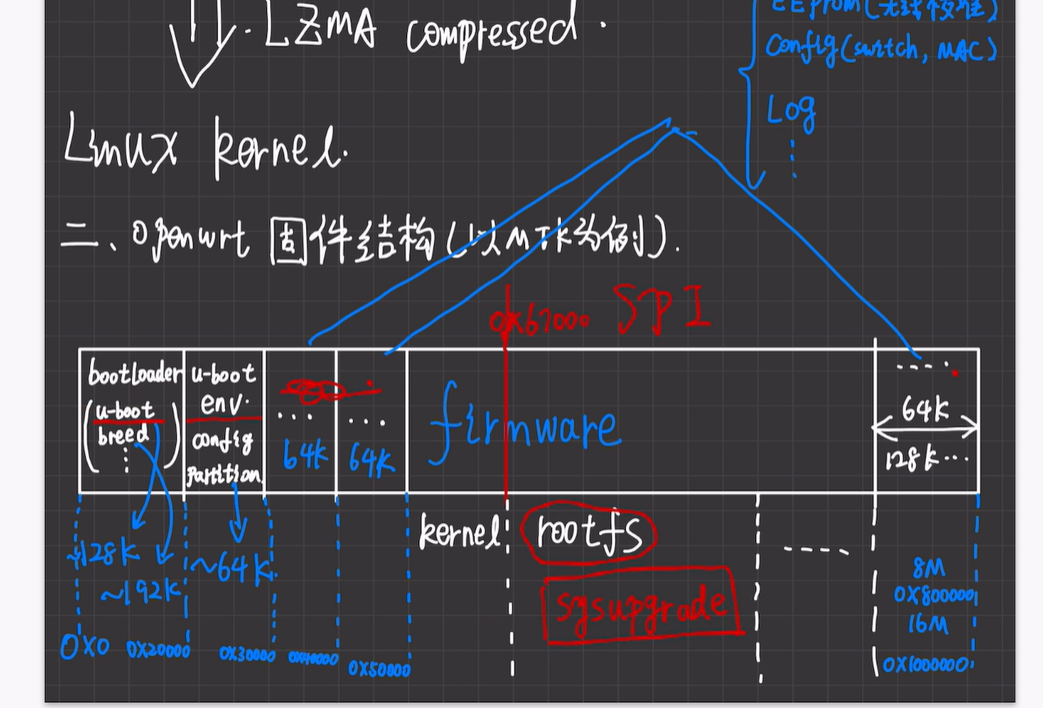 LZMA compressed.
EEprom(无线校准)
Config(switch, MAC)
Log
Linux kernel.
二、Openwrt 固件结构(以MTK为例).
0x67000 SPI
bootloader
(u-boot
breed)
u-boot
env.
config
partition
...
64K
...
64K
firmware
....
64K
128K...
kernel
rootfs
sysupgrade
----
~128K
~192K
~64K
8M
0X800000
16M
0X1000000
0X0
0X20000
0X30000
0X40000
0X50000